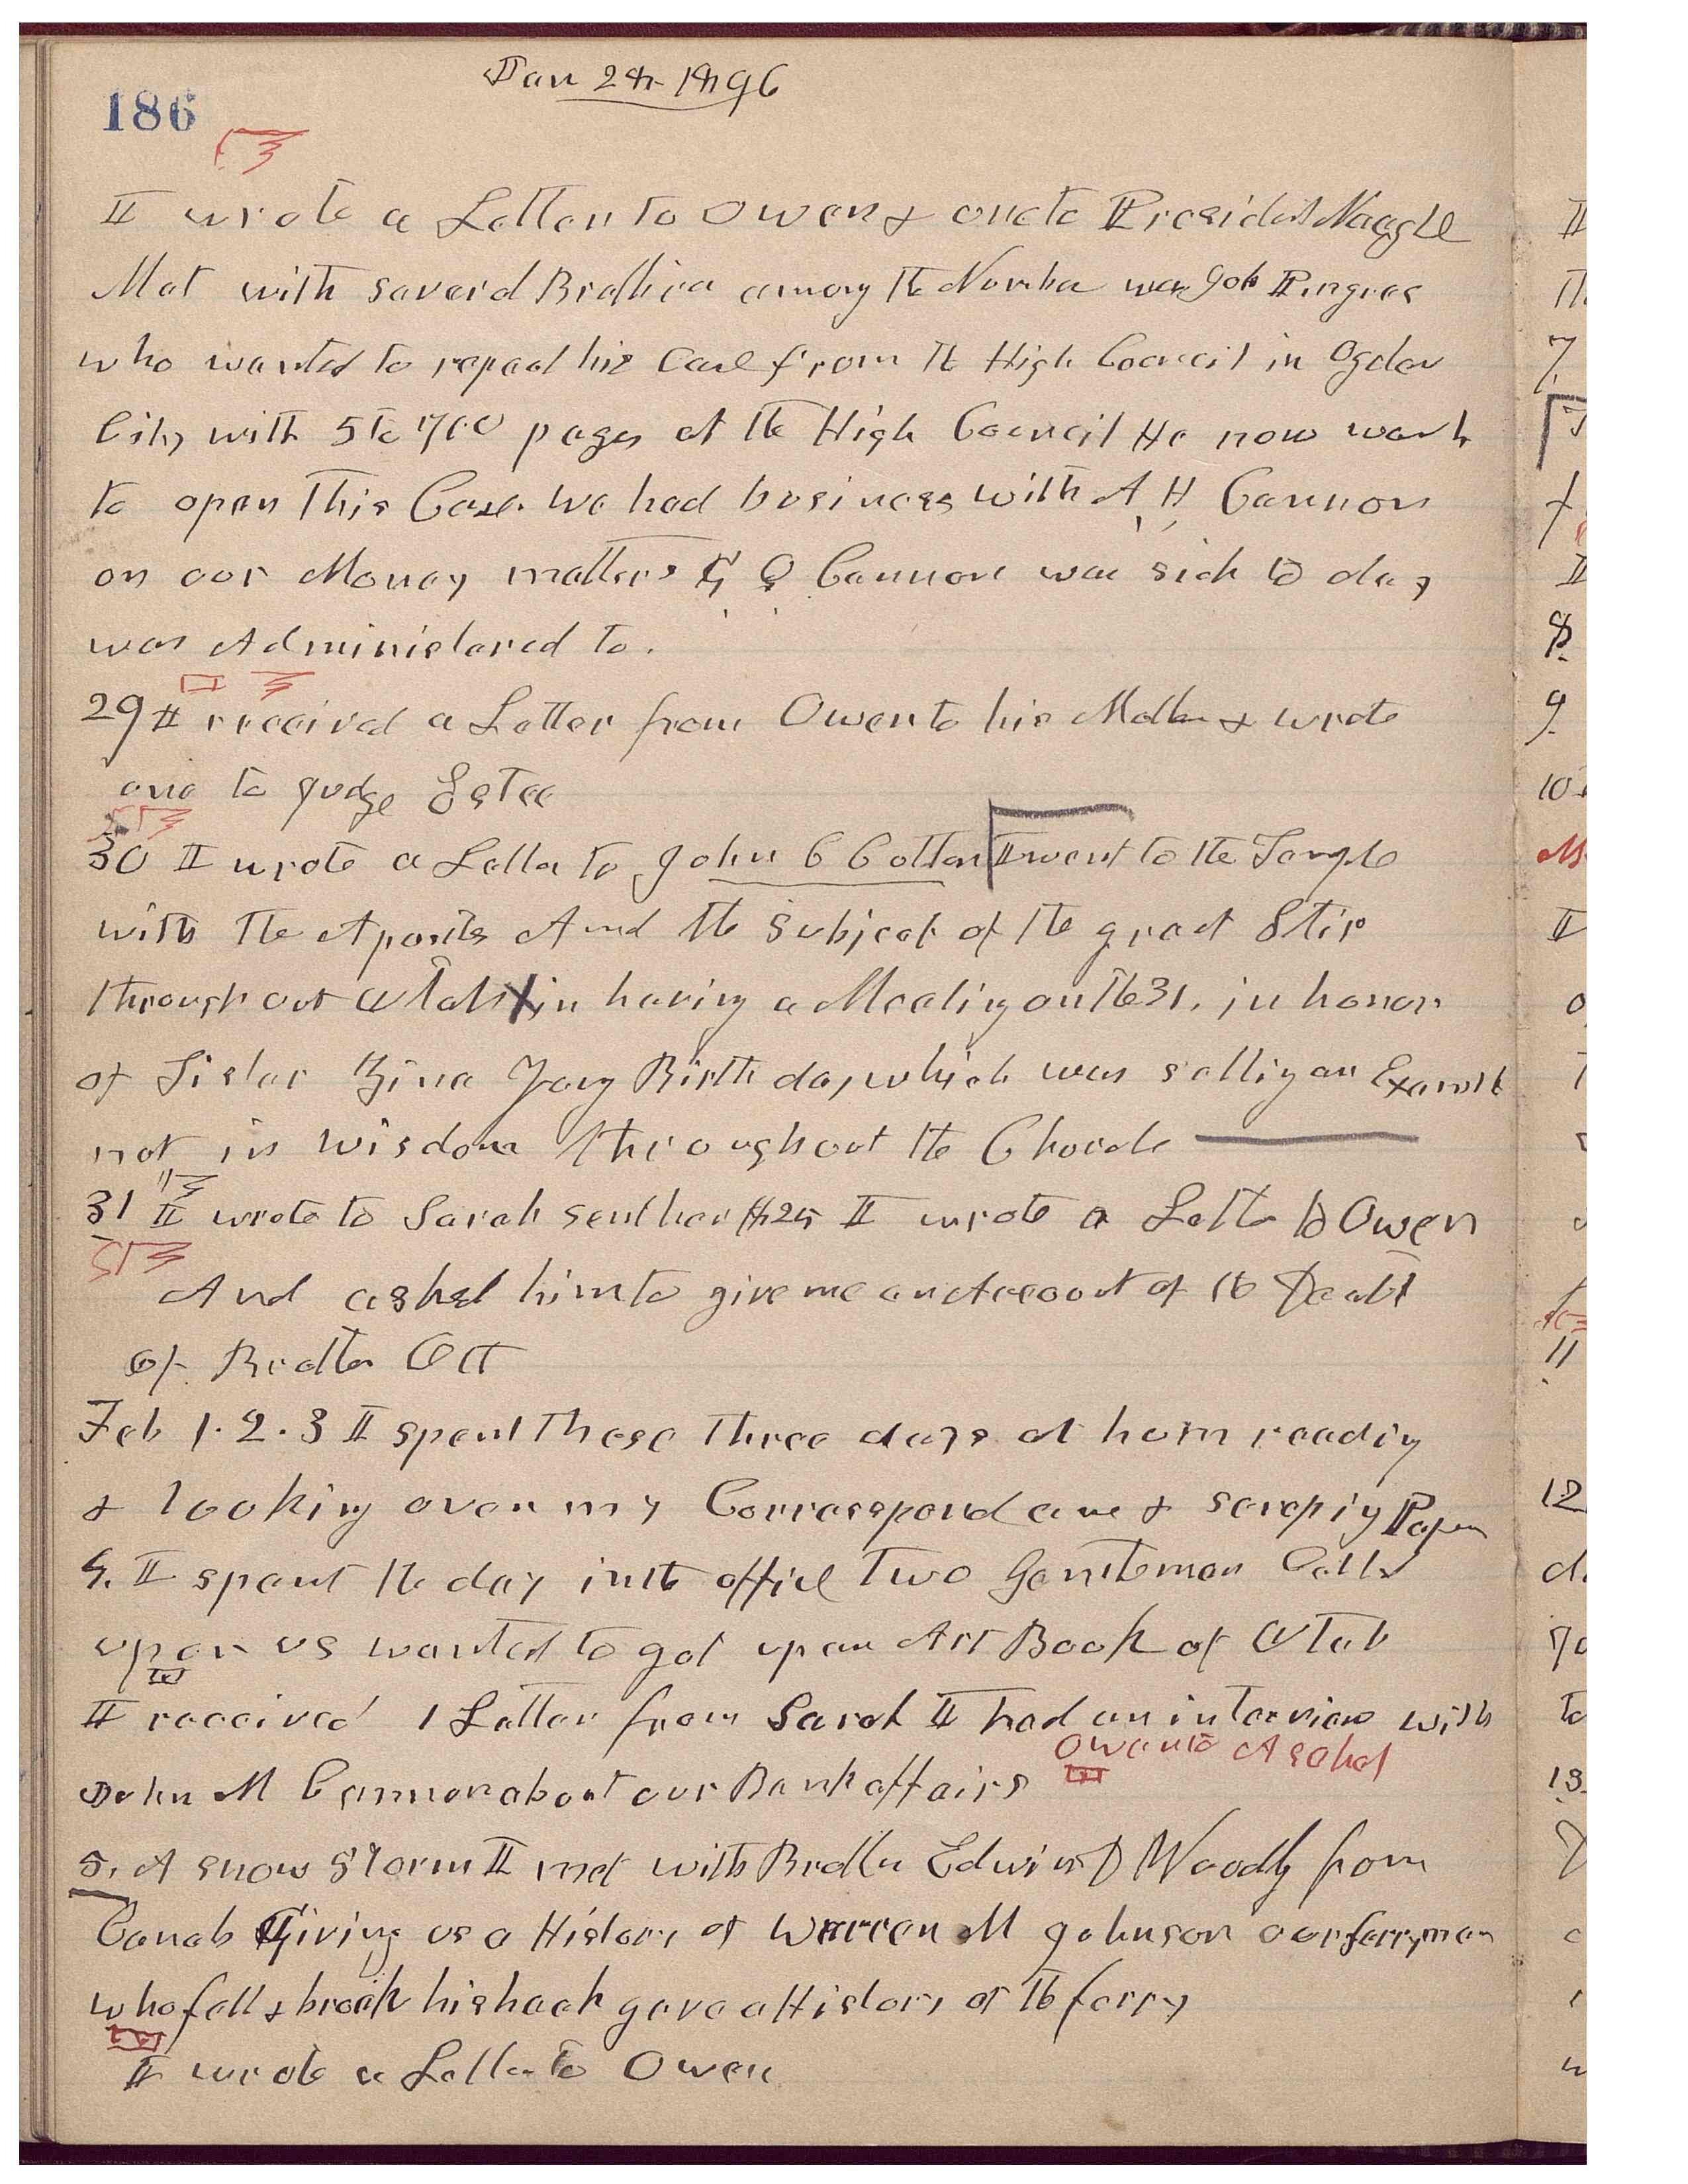 Jan 28 1896
186
I wrote a Letter to Owen & one to President Naegle
Met with saverd Brethren among the Number was Job Pingree
who wanted to repeal his Case from the High Council in Ogden
City with 5 to 700 pages at the High Council He now want
to open this Case. We had business with A H Cannon
on our Money matters G Q Cannon was sick to day
was Administered to.
29 I received a Letter from Owen to his Mother & wrote
one to Judge Estee
30 I wrote a Letter to John C Cotton I went to the Temple
with the Apostls And the subject of the great Stir
throughout Utah in having a Meeting on the 31, in honor
of Sister Zina Young Birth day, which was setting an Exampl
not in wisdom throughout the Church
31 I wrote to Sarah sent her $25 I wrote a Letter to Owen
And asked him to give me an Account of the Death
of Brother Ott
Feb 1. 2. 3 I spent these three days at home reading
& looking over my Correspondance & scraping Papers
4. I spent the day in the office Two Gentlemen Calld
upon us wanted to get up an Art Book of Utah
I received 1 Letter from Sarah I had an interview with
Owen to Asahel
John M Cannon about our Bank affairs
5. A snow storm I met with Brother Edwin D Woolly from
Canab Giving us a History of Warren M Johnson our ferryman
who fell & broak his back gave a History of the ferry
I wrote a Letter to Owen